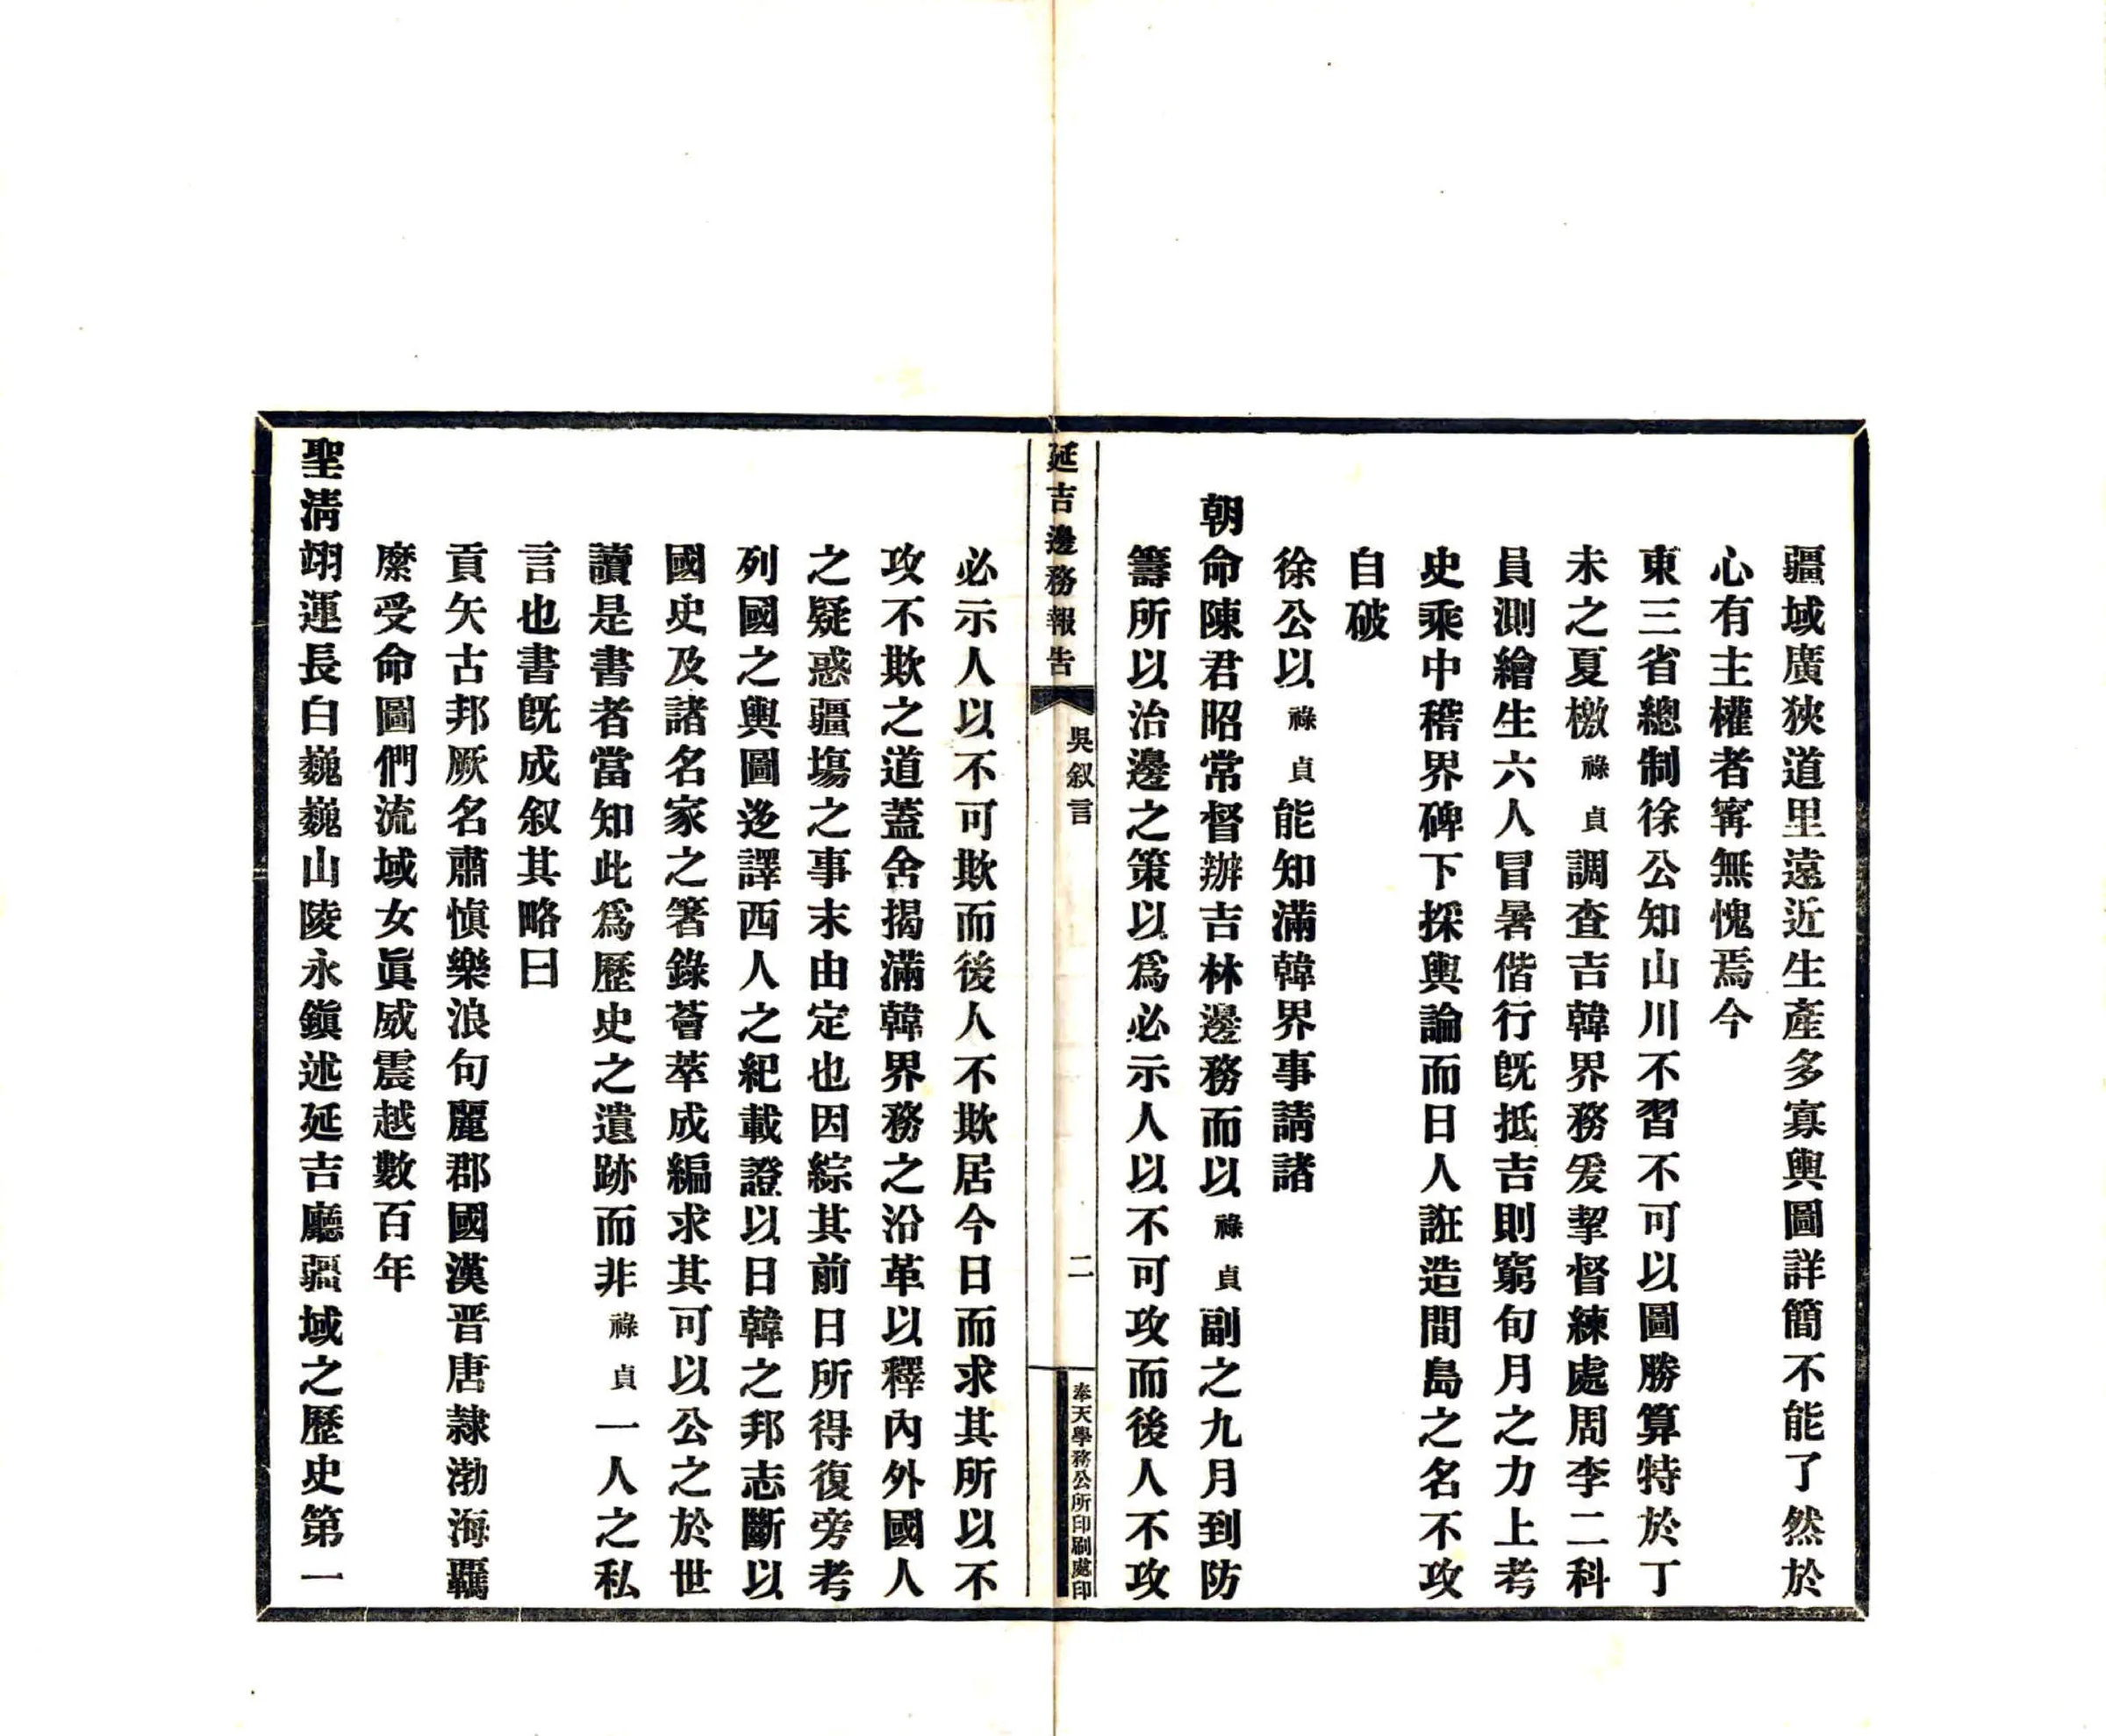 疆域廣狹道里遠近生產多寡輿圖詳簡不能了然於
心有主權者寗無愧焉今
東三省總制徐公知山川不習不可以圖勝算特於丁
未之夏檄祿貞調查吉韓界務爰挈督練處周李二科
員測繪生六人冒暑偕行既抵吉則窮旬月之力上考
史乘中稽界碑下採輿論而日人誑造間島之名不攻
自破
徐公以祿貞能知滿韓界事請諸
朝命陳君昭常督辦吉林邊務而以祿貞副之九月到防
籌所以治邊之策以爲必示人以不可攻而後人不攻
延吉邊務報告
吳叙言
二
奉天學務公所印刷處印
必示人以不可欺而後人不欺居今日而求其所以不
攻不欺之道蓋舍揭滿韓界務之沿革以釋內外國人
之疑惑疆場之事末由定也因綜其前日所得復旁考
列國之輿圖迻譯西人之紀載證以日韓之邦志斷以
國史及諸名家之箸錄薈萃成編求其可以公之於世
讀是書者當知此爲歷史之遺跡而非祿貞一人之私
言也書既成叙其略曰
貢矢古邦厥名肅愼樂浪句麗郡國漢晋唐隷渤海羈
縻受命圖們流域女眞威震越數百年
聖淸翊運長白巍巍山陵永鎭述延吉廳疆域之歷史第一